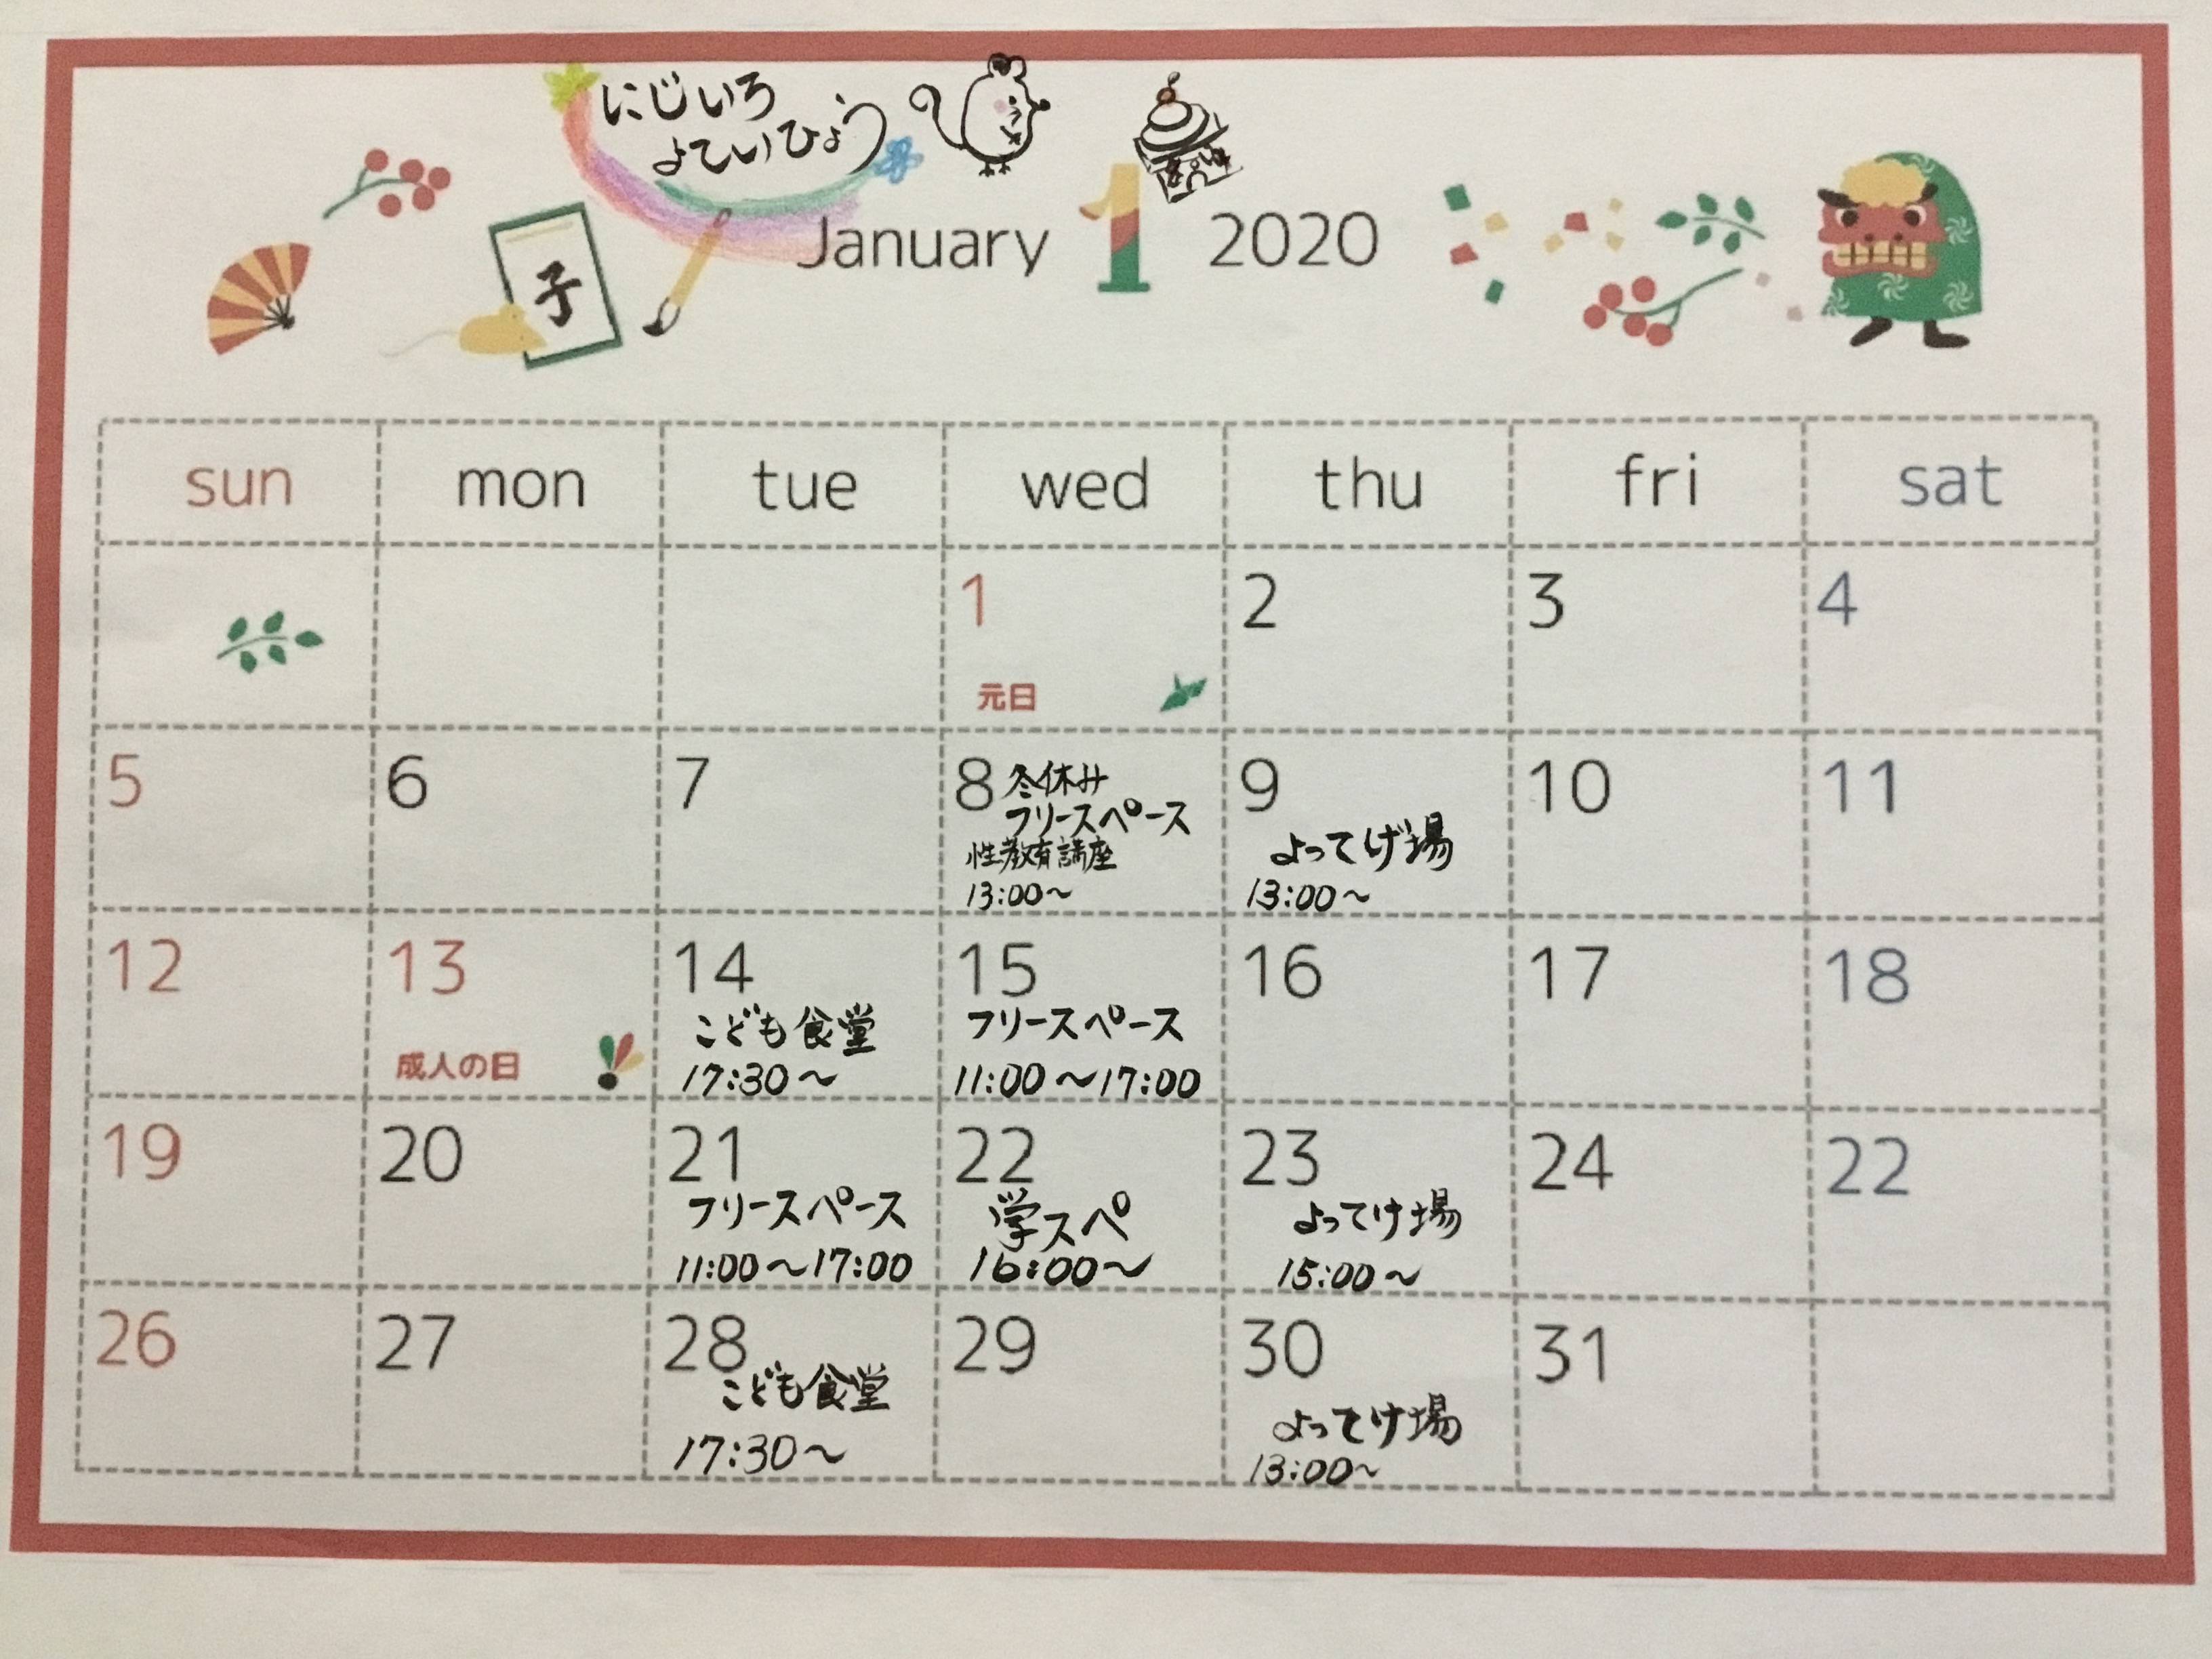 にじいろ
よていひょう
子
January 1 2020
sun mon tue wed thu fri sat
1 2 3 4
元日
5 6 7 8 9 10 11
冬休み
フリースペース
性教育講座
13:00〜
よってげ場
13:00〜
12 13 14 15 16 17 18
成人の日
こども食堂
17:30〜
フリースペース
11:00〜17:00
19 20 21 22 23 24 22
フリースペース
11:00〜17:00
学スペ
16:00〜
よってけ場
15:00〜
26 27 28 29 30 31
こども食堂
17:30〜
よってけ場
13:00〜